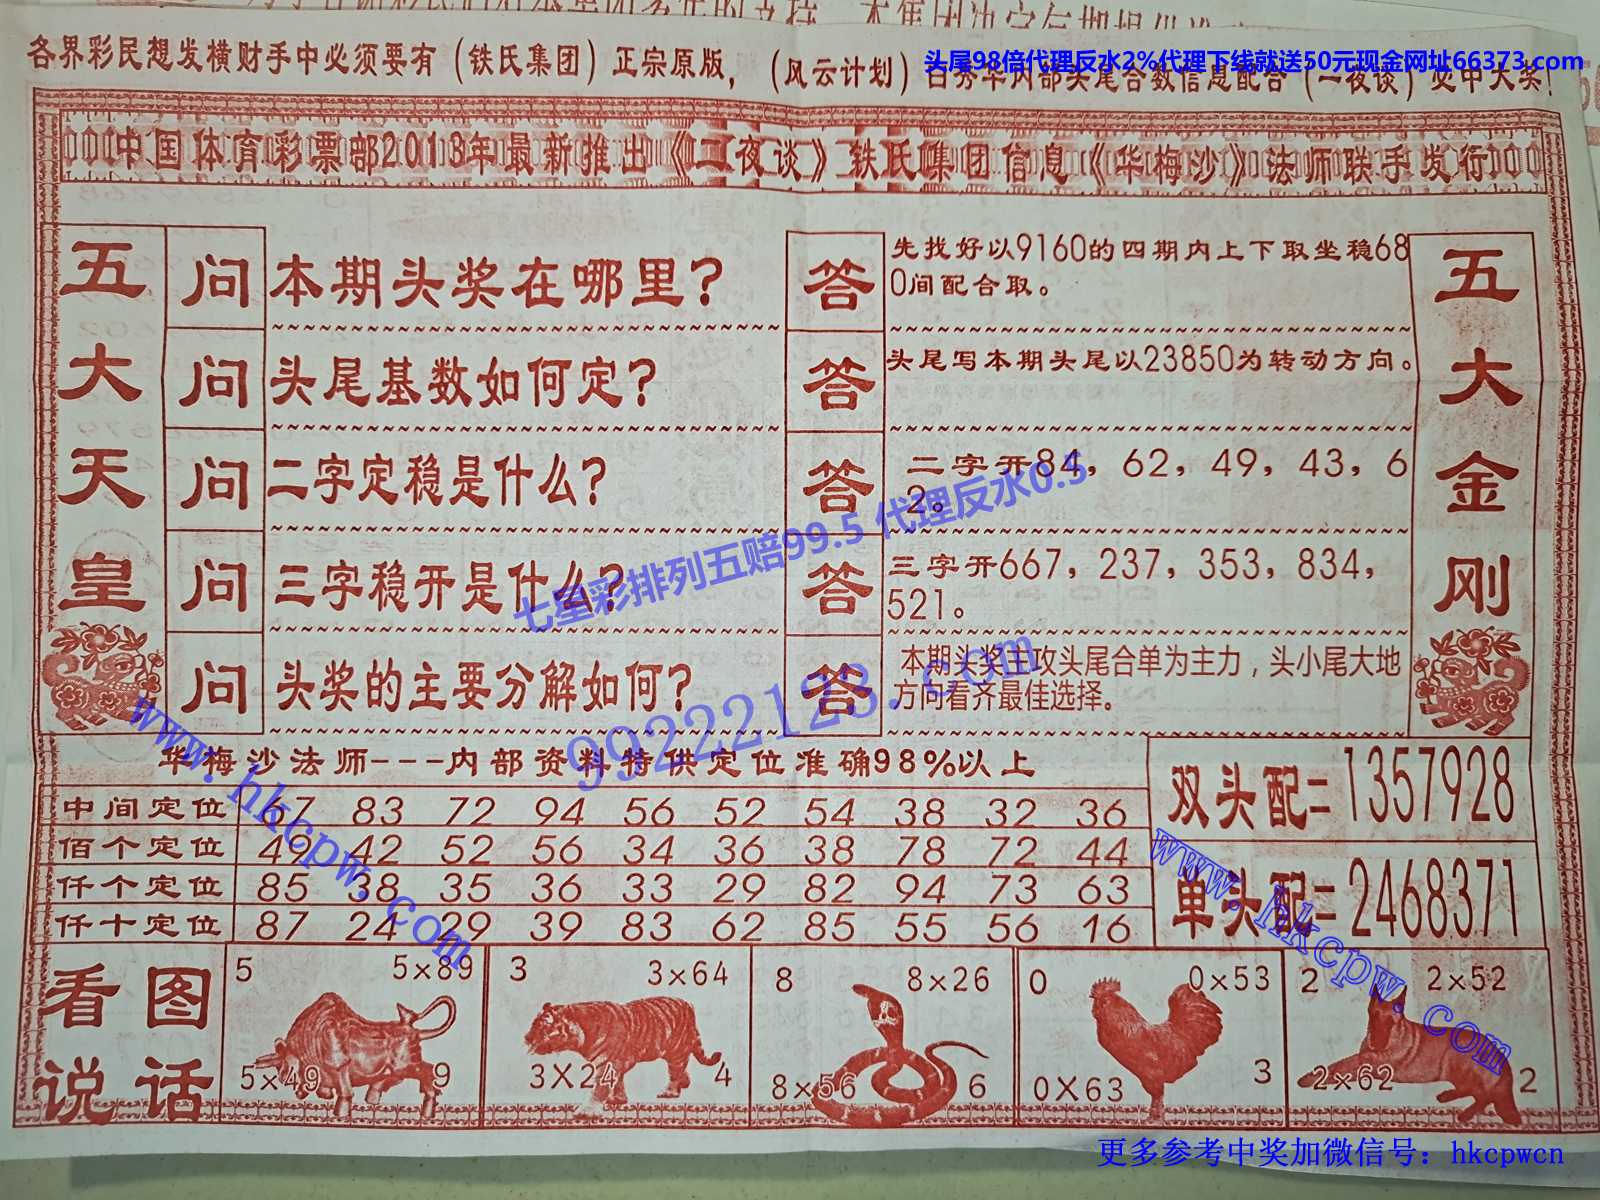 各界彩民想发横财手中必须要有（铁氏集团）正宗原版，（风云计划）白秀华内部头尾合数信息配合（一夜谈）必中大奖！
头尾98倍代理反水2%代理下线就送50元现金网址66373.com
中国体育彩票部2013年最新推出《二夜谈》铁氏集团信息《华梅沙》法师联手发行
五大天皇
问 本期头奖在哪里？
答 先找好以9160的四期内上下取坐稳68
0间配合取。
问 头尾基数如何定？
答 头尾写本期头尾以23850为转动方向。
问 二字定稳是什么？
答 二字开84，62，49，43，6
2。
问 三字稳开是什么？
答 三字开667，237，353，834，
521。
问 头奖的主要分解如何？
答 本期头奖主攻头尾合单为主力，头小尾大地
方向看齐最佳选择.
五大金刚
七星彩排列五赔99.5 代理反水0.5
99222123.com
www.hkcpw.com
华梅沙法师---内部资料特供定位准确98%以上
中间定位 67 83 72 94 56 52 54 38 32 36
佰个定位 49 42 52 56 34 36 38 78 72 44
仟个定位 85 38 35 36 33 29 82 94 73 63
仟十定位 87 24 29 39 83 62 85 55 56 16
双头配=1357928
单头配=2468371
www.hkcpw.com
看图
说话
5 5×89
5×49 9
3 3×64
3×24 4
8 8×26
8×56 6
0 0×53
0×63 3
2 2×52
2×62 2
更多参考中奖加微信号：hkcpwcn